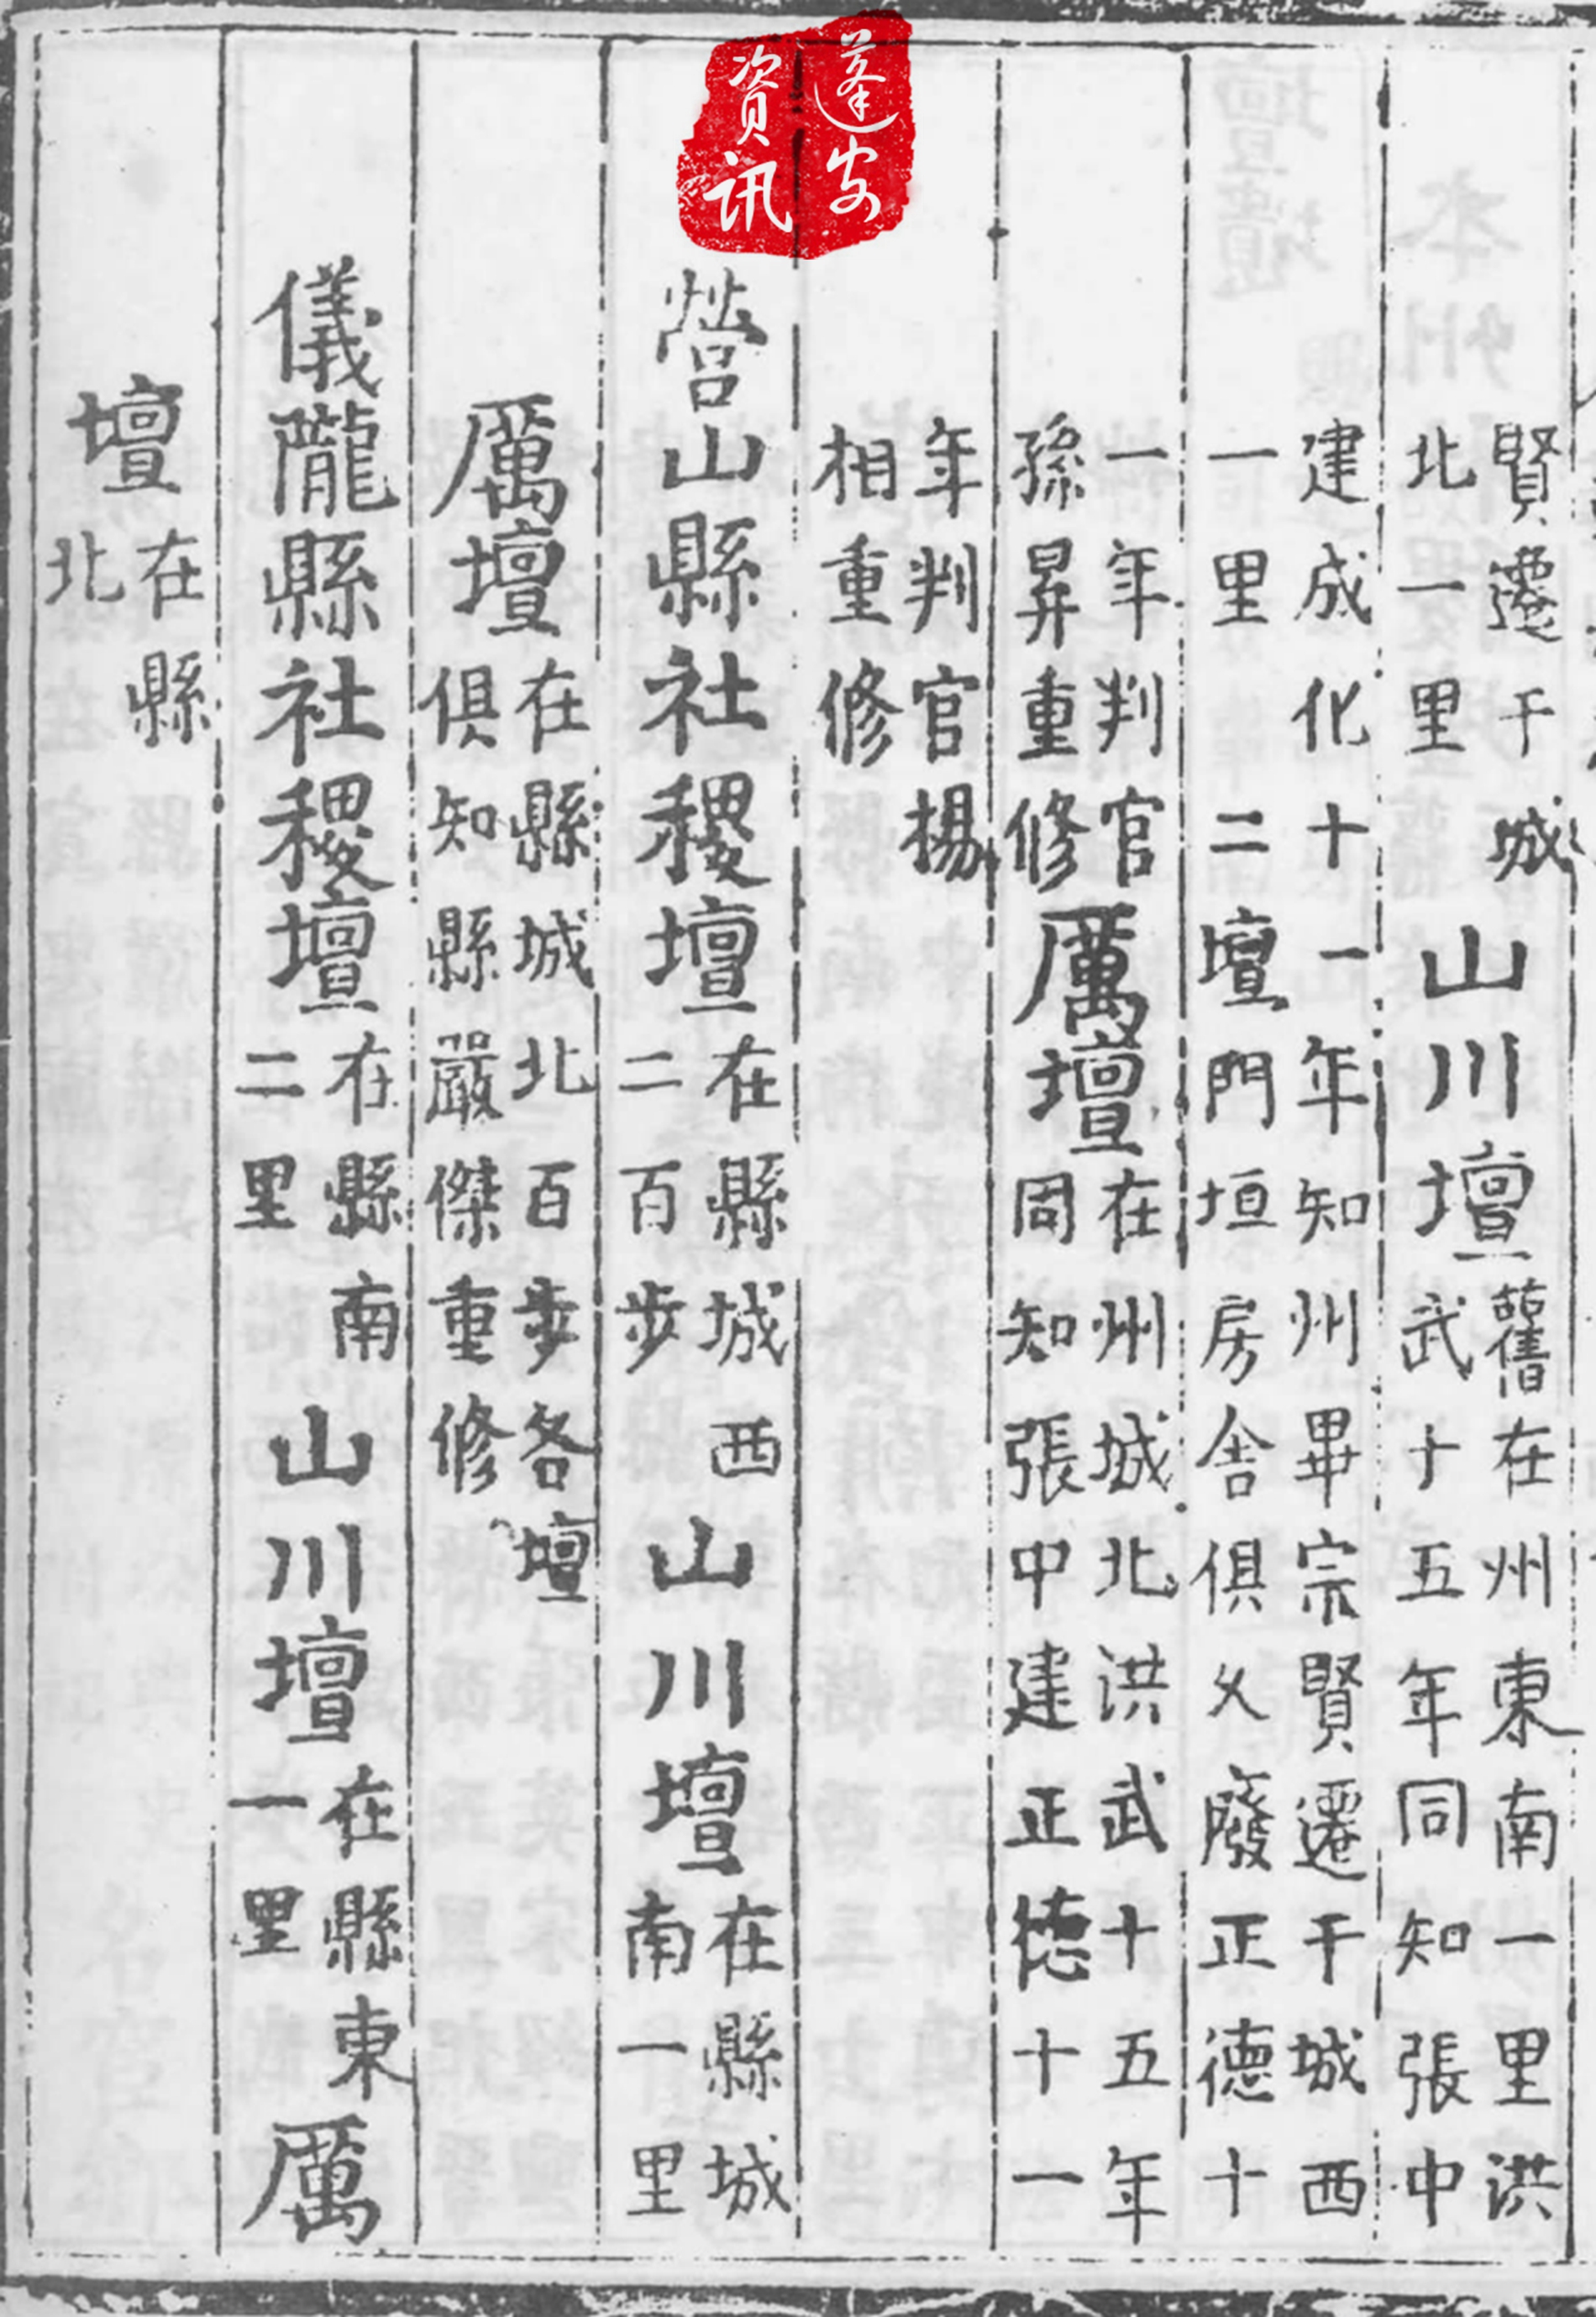 蓬安
資訊
賢遷于城
北一里
山川壇
舊在州東南一里洪
武十五年同知張中
建成化十一年知州畢宗賢遷于城西
一里二壇門垣房舍俱乆廢正德十
一年判官
孫昇重修
厲壇
在州城北洪武十五年
同知張中建正德十一
年判官楊
相重修
營山縣社稷壇
在縣城西
二百步
山川壇
在縣城
南一里
厲壇
在縣城北百步各壇
俱知縣嚴傑重修
儀隴縣社稷壇
在縣南
二里
山川壇
在縣東
一里
厲
壇
在縣
北